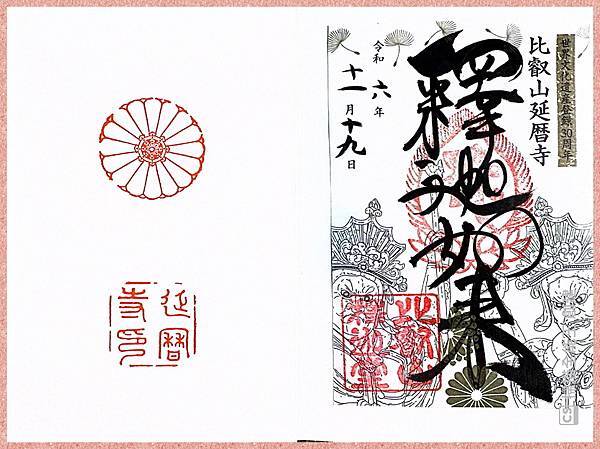 世界文化遺産登録30周年
比叡山延暦寺
釋迦如来
令和六年
十一月十九日
延暦
寺印